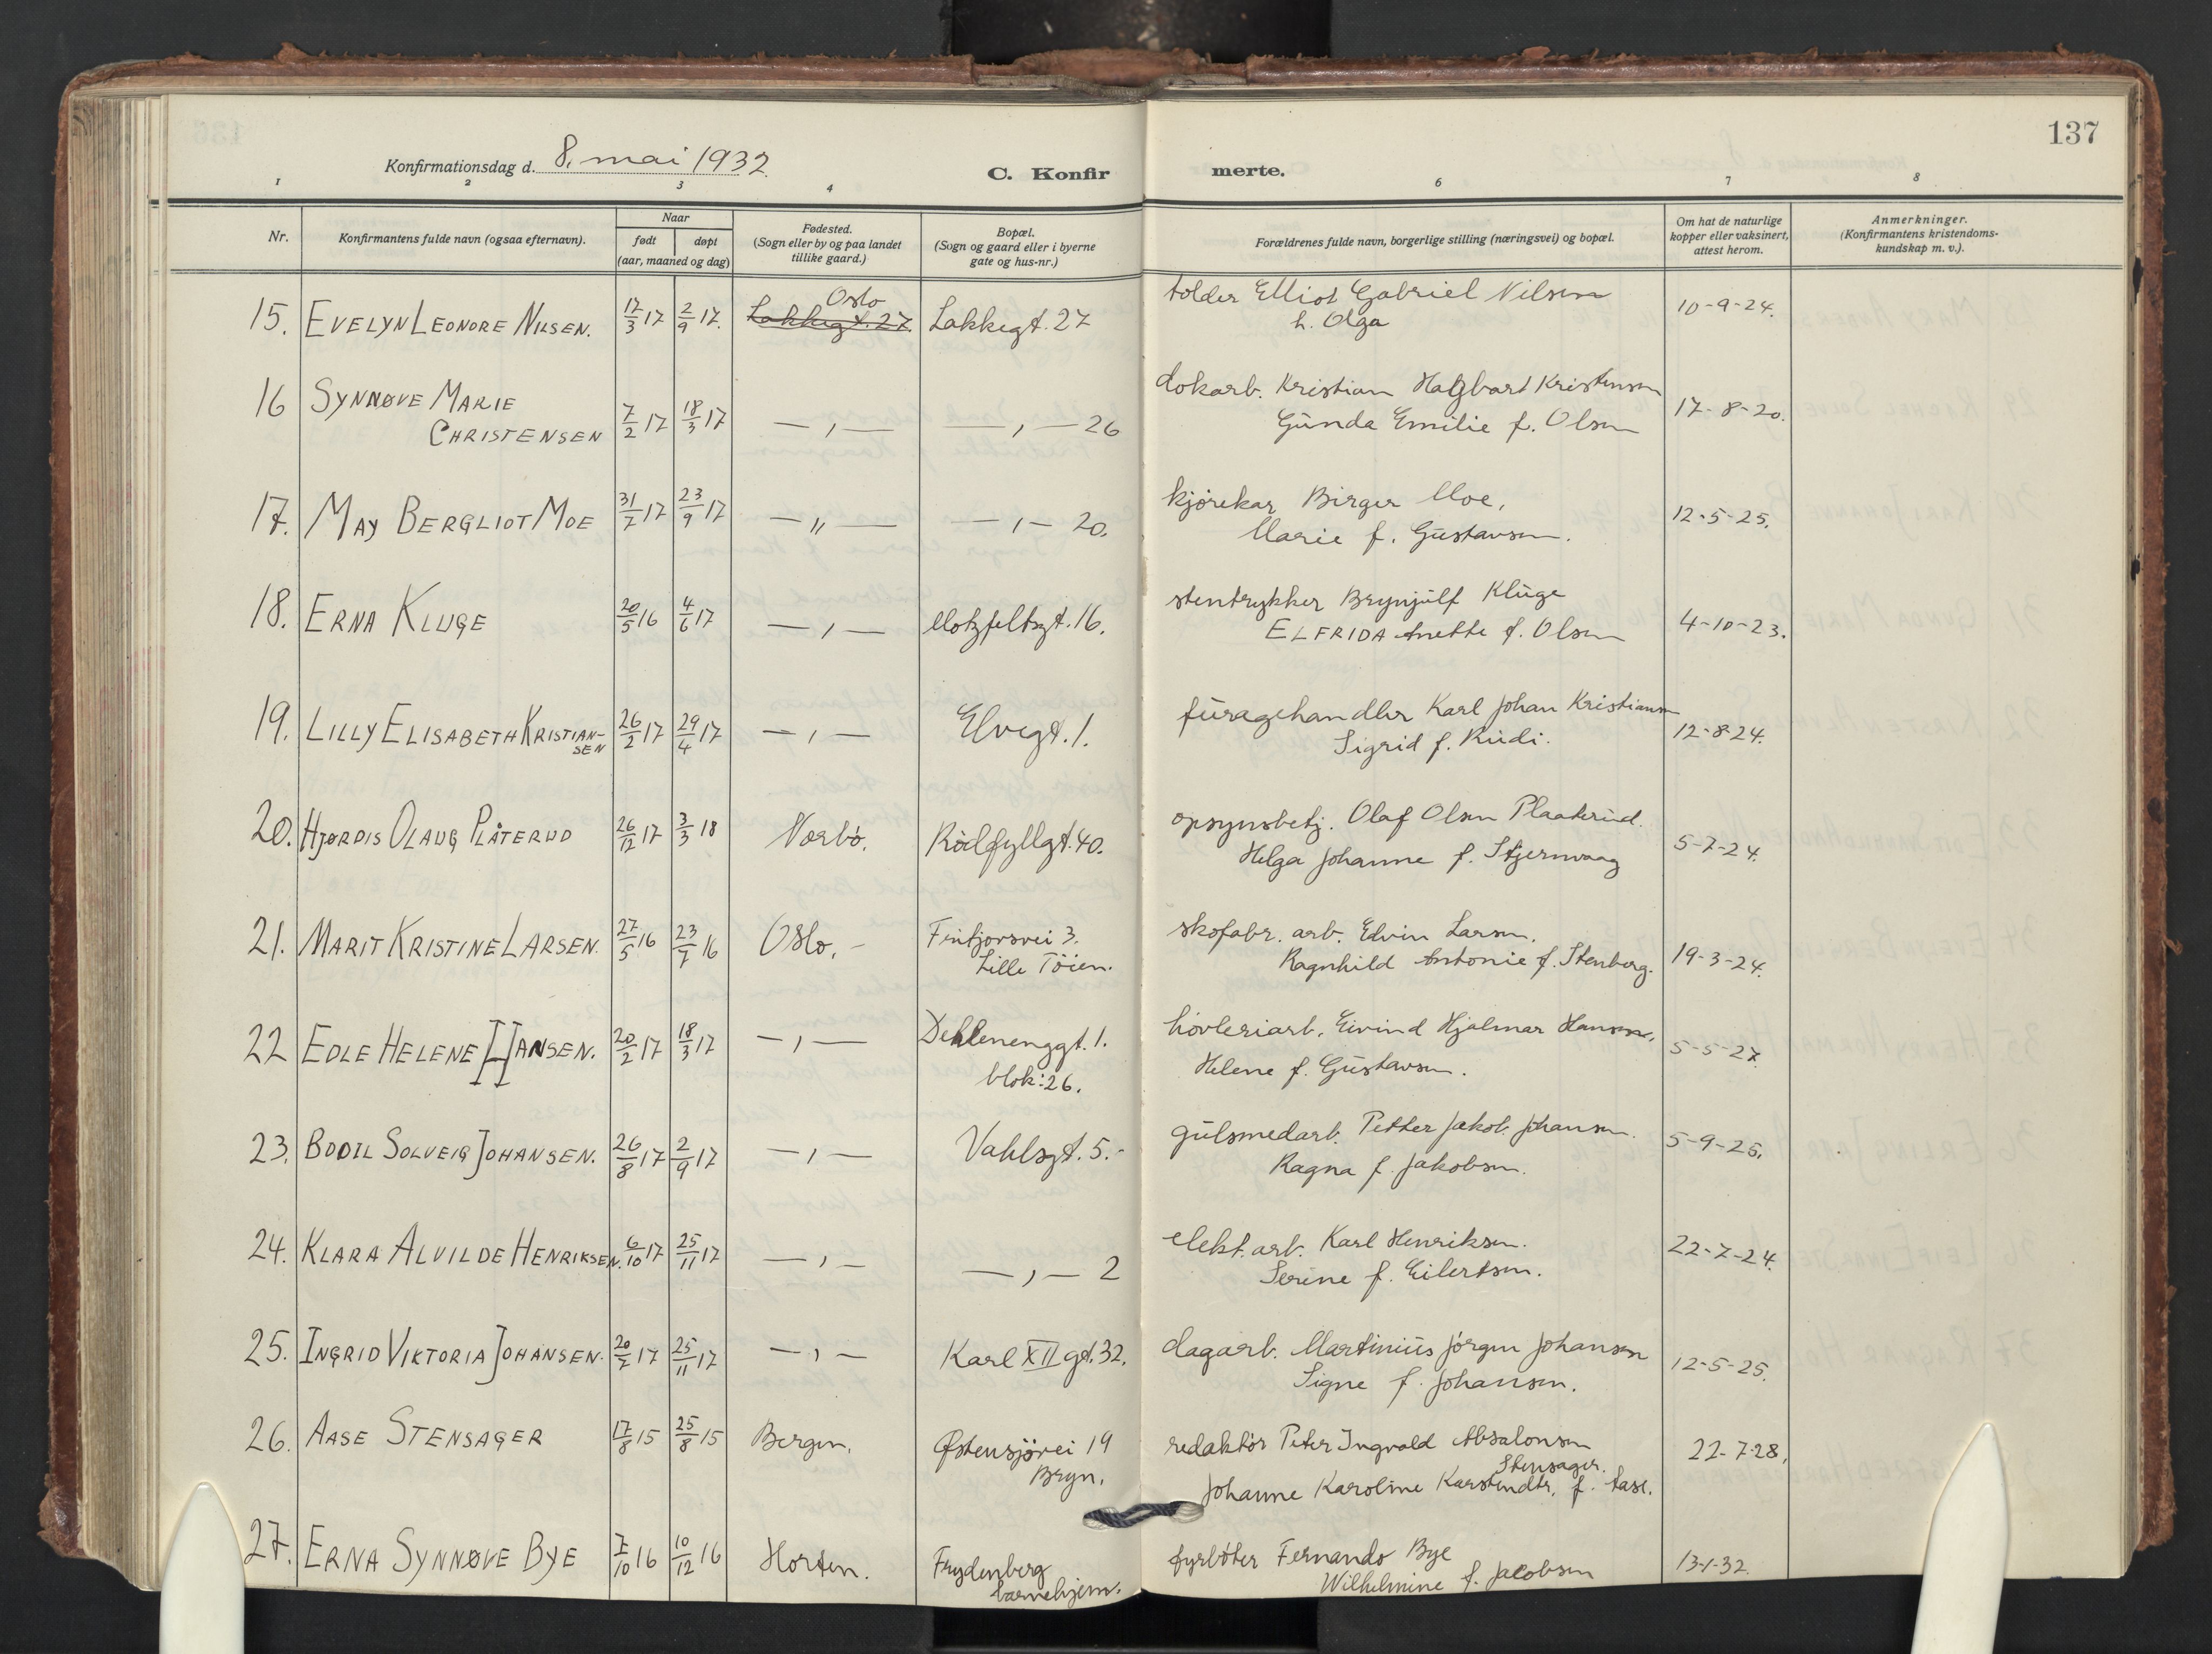 137
Konfirmationsdag d. 8. mai 1932.
C. Konfir merte.
1 2 3 4 6 7 8
Nr.
Konfirmantens fulde navn (ogsaa efternavn).
Naar
født døpt
(aar, maaned og dag)
Fødested.
(Sogn eller by og paa landet
tillike gaard.)
Bopæl.
(Sogn og gaard eller i byerne
gate og hus-nr.)
Forældrenes fulde navn, borgerlige stilling (næringsvei) og bopæl.
Om hat de naturlige
kopper eller vaksinert,
attest herom.
Anmerkninger.
(Konfirmantens kristendoms-
kundskap m. v.).
Oslo
15. EVELYN LEONORE NILSEN. 17/3 17 2/9 17. Lakkegt. 27. Lakkegt. 27 tolder Elliot Gabriel Nilsen 10-9-24.
h. Olga
16 SYNNØVE MARIE dokarb. Kristian Hagbart Kristensen
CHRISTENSEN 7/2 17 18/3 17 — , — — , — 26 Gunda Emilie f. Olsen 17-8-20.
17. MAY BERGLIOT MOE 31/7 17 23/9 17 — „ — — , — 20. kjörekar Birger Moe, 12-5-25.
Marie f. Gustavsen.
18. ERNA KLUGE 20/5 16 4/6 17 — , — Motzfeltsgt. 16. stentrykker Brynjulf Kluge 4-10-23.
ELFRIDA Anette f. Olsen
19. LILLY ELISABETH KRISTIAN- 26/2 17 29/4 17 — , — Elvegt. 1. furagehandler Karl Johan Kristiansen 12-8-24.
SEN Sigrid f. Rudi.
20. HJØRDIS OLAUG PLÅTERUD 26/12 17 3/3 18 Norbö. Rödfyllgt. 40. opsynsbetj. Olaf Olsen Plaaterud. 5-7-24.
Helga Johanne f. Stjernvaag
21. MARIT KRISTINE LARSEN. 27/5 16 23/7 16 Oslo. - Fritjovsvei 3. skofabr. arb. Edvin Larsen. 19-3-24.
Lille Töien. Ragnhild Antonie f. Stenberg.
22 EDLE HELENE HANSEN. 20/2 17 18/3 17 — , — Dehlenenggt. 1. hövleriarb. Eivind Hjalmar Hansen. 5-5-27.
blok: 26. Helene f. Gustavsen.
23. BODIL SOLVEIG JOHANSEN. 26/8 17 2/9 17 — , — Vahlsgt. 5. - gulsmedarb. Petter Jakob Johansen. 5-9-25.
Ragna f. Jakobsen.
24. KLARA ALVILDE HENRIKSEN. 6/10 17 25/11 17 — , — — , — 2 elekt. arb. Karl Henriksen. 22-7-24.
Serine f. Eilertsen.
25. INGRID VIKTORIA JOHANSEN. 20/7 17 25/11 17 — , — Karl XII gt. 32. dagarb. Martinius Jörgen Johansen 12-5-25.
Signe f. Johansen.
26. AASE STENSAGER 17/8 15 25/8 15 Bergen. Østensjövei 19 redaktör Peter Ingvald Absalonsen 22-7-28.
Bryn. Stensager.
Johanne Karoline Karstendtr. f. Aase.
27. ERNA SYNNØVE BYE 7/10 16 10/12 16 Horten. Frydenberg fyrböter Fernando Bye 13-1-32.
barnehjem. Wilhelmine f. Jacobsen